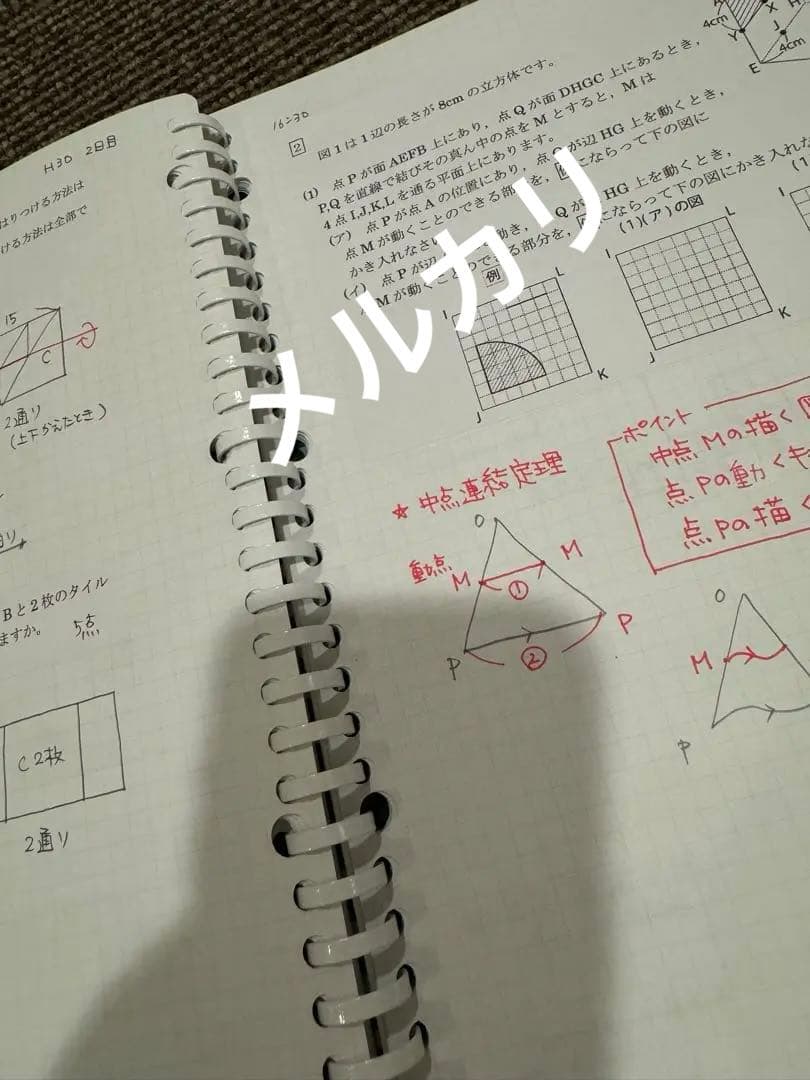 H30 2日目
はりつける方法は
ける方法は全部で
15
C
2通り
(上下かえたとき)
Bと2枚のタイル
ますか。 5点
C 2枚
2通り
16-30
2 図1は1辺の長さが8cmの立方体です。
(1) 点Pが面AEFB上にあり，点Qが面DHGC上にあるとき，
P,Qを直線で結びその真ん中の点をMとすると，Mは
4点I,J,K,Lを通る平面上にあります。
(ア) 点Pが点Aの位置にあり，点Qが辺HG上を動くとき，
点Mが動くことのできる部分を，
にならって下の図に
かき入れなさ
(イ) 点Pが辺
動き，
Qが
HG上を動くとき，
Mが動くこと
できる部分を，
にならって下の図にかき入れな
例
(1)(ア)の図
I
L
J
K
I
L
J
K
4cm
Y
X
J
4cm
E
メルカリ
★中点連結定理
動点
O
M
M
①
P
P
②
ポイント
中点Mの描く
点Pの動く
点Pの描く
O
M
P